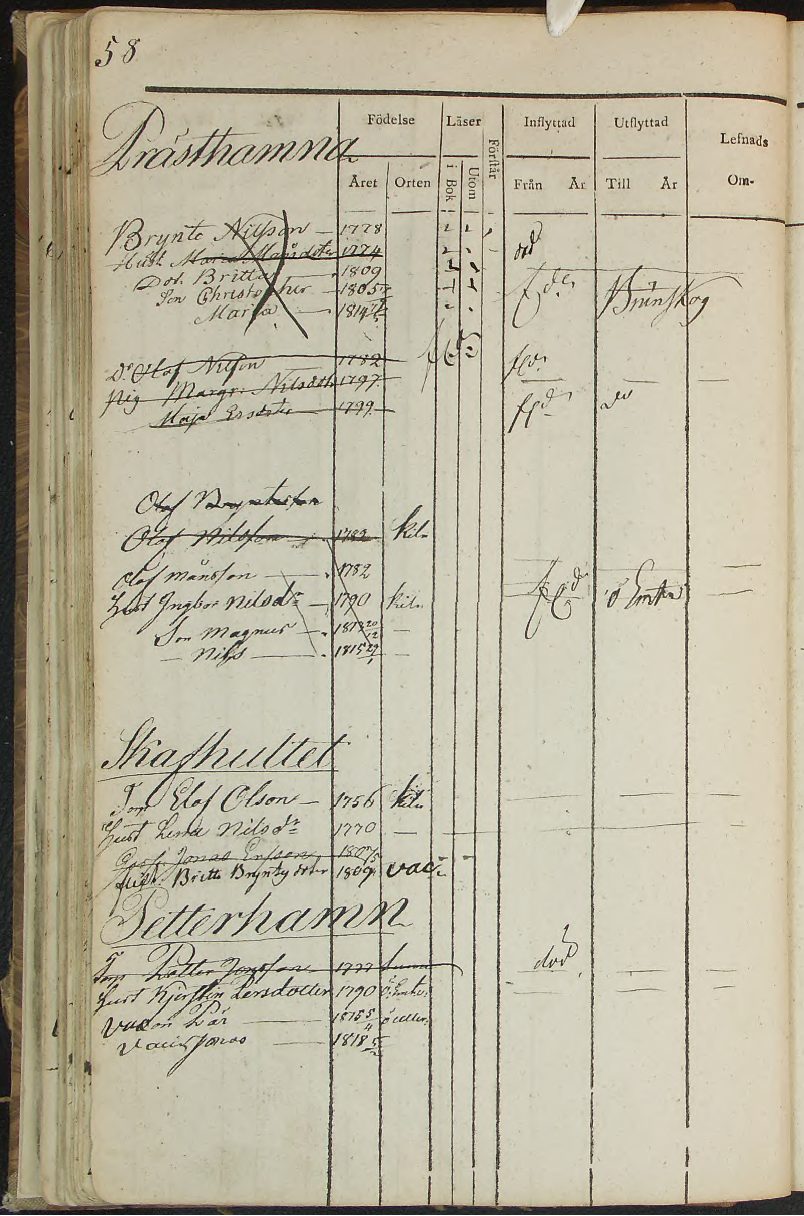 58
Födelse Läser Inflyttad Utflyttad Lefnads
Förstår
Prästhamna
Året Orten i Bok Utom Från År Till År Om-
Brynte Nilsson 1778
Hust Maria Månsdotr 1774 död
Dot. Britta 1809
Son Christopher 1805 Brunskog
Maria 1814
Dr Olof Nilson 1782
Pig Margr: Nilsdotr 1797
Maja Ersdotr 1799
Olof Bryntesson
Olof Nilsson 1782 kil
Olof Månsson 1782
Hust Ingbor Nilsdr 1790 kil ö Emter
Son Magnus 1813 20/12
Nils 1815 29/1
Skafhultet
Torp Elof Olson 1756 kil
Hust Lena Nilsdr 1770
Jonas Ersson 1807
Hust. Britta Bryntesdoter 1809 vac
Petterhamn
Torp Petter Jonsson 1777 död
Hust Kjerstin Larsdotter 1790 ö: Emter:
vac Son Pär 1815 5/4
vac Jonas 1818